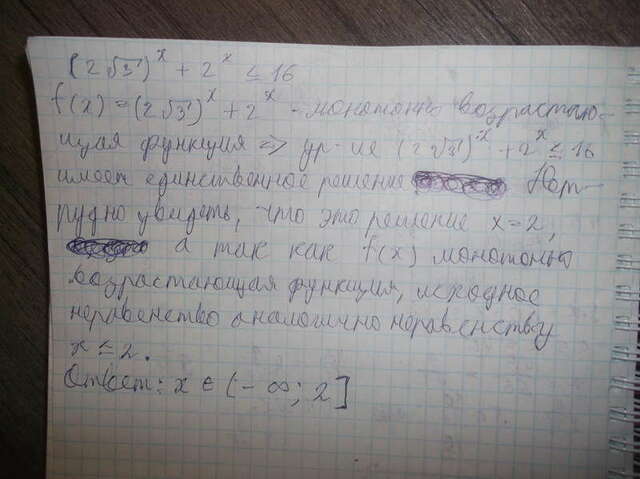 (2√3)^x + 2^x ≤ 16
f(x) = (2√3)^x + 2^x - монотонно возрастаю-
щая функция => ур-ие (2√3)^x + 2^x ≤ 16
имеет единственное решение Нет-
рудно увидеть, что это решение x=2,
а так как f(x) монотонно
возрастающая функция, исходное
неравенство аналогично неравенству
x ≤ 2.
Ответ: x ∈ (-∞; 2]